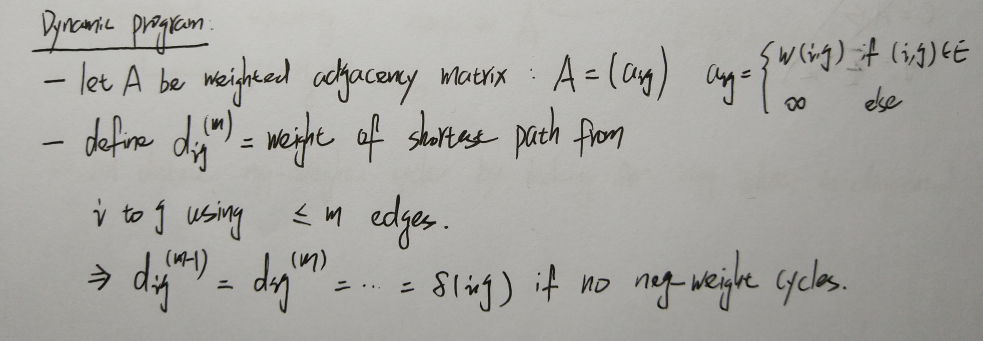 Dynamic program:
- let A be weighted adjacency matrix : A = (aij) aij = { w(i,j) if (i,j) ∈ E
∞ else
- define dij^(m) = weight of shortest path from
i to j using ≤ m edges.
⇒ dij^(m-1) = dij^(m) = ... = δ(i,j) if no neg-weight cycles.